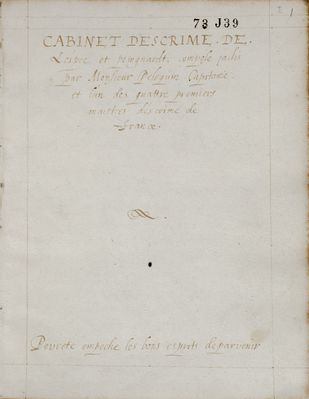 73 J39
1
CABINET DESCRIME. DE.
Lespee et poingnardt, compose jadis
par Monsieur Peloquin Capitaine.
et lun des quattre premiers
maistres descrime de
France.
Povrete empeche les bons esprits de parvenir